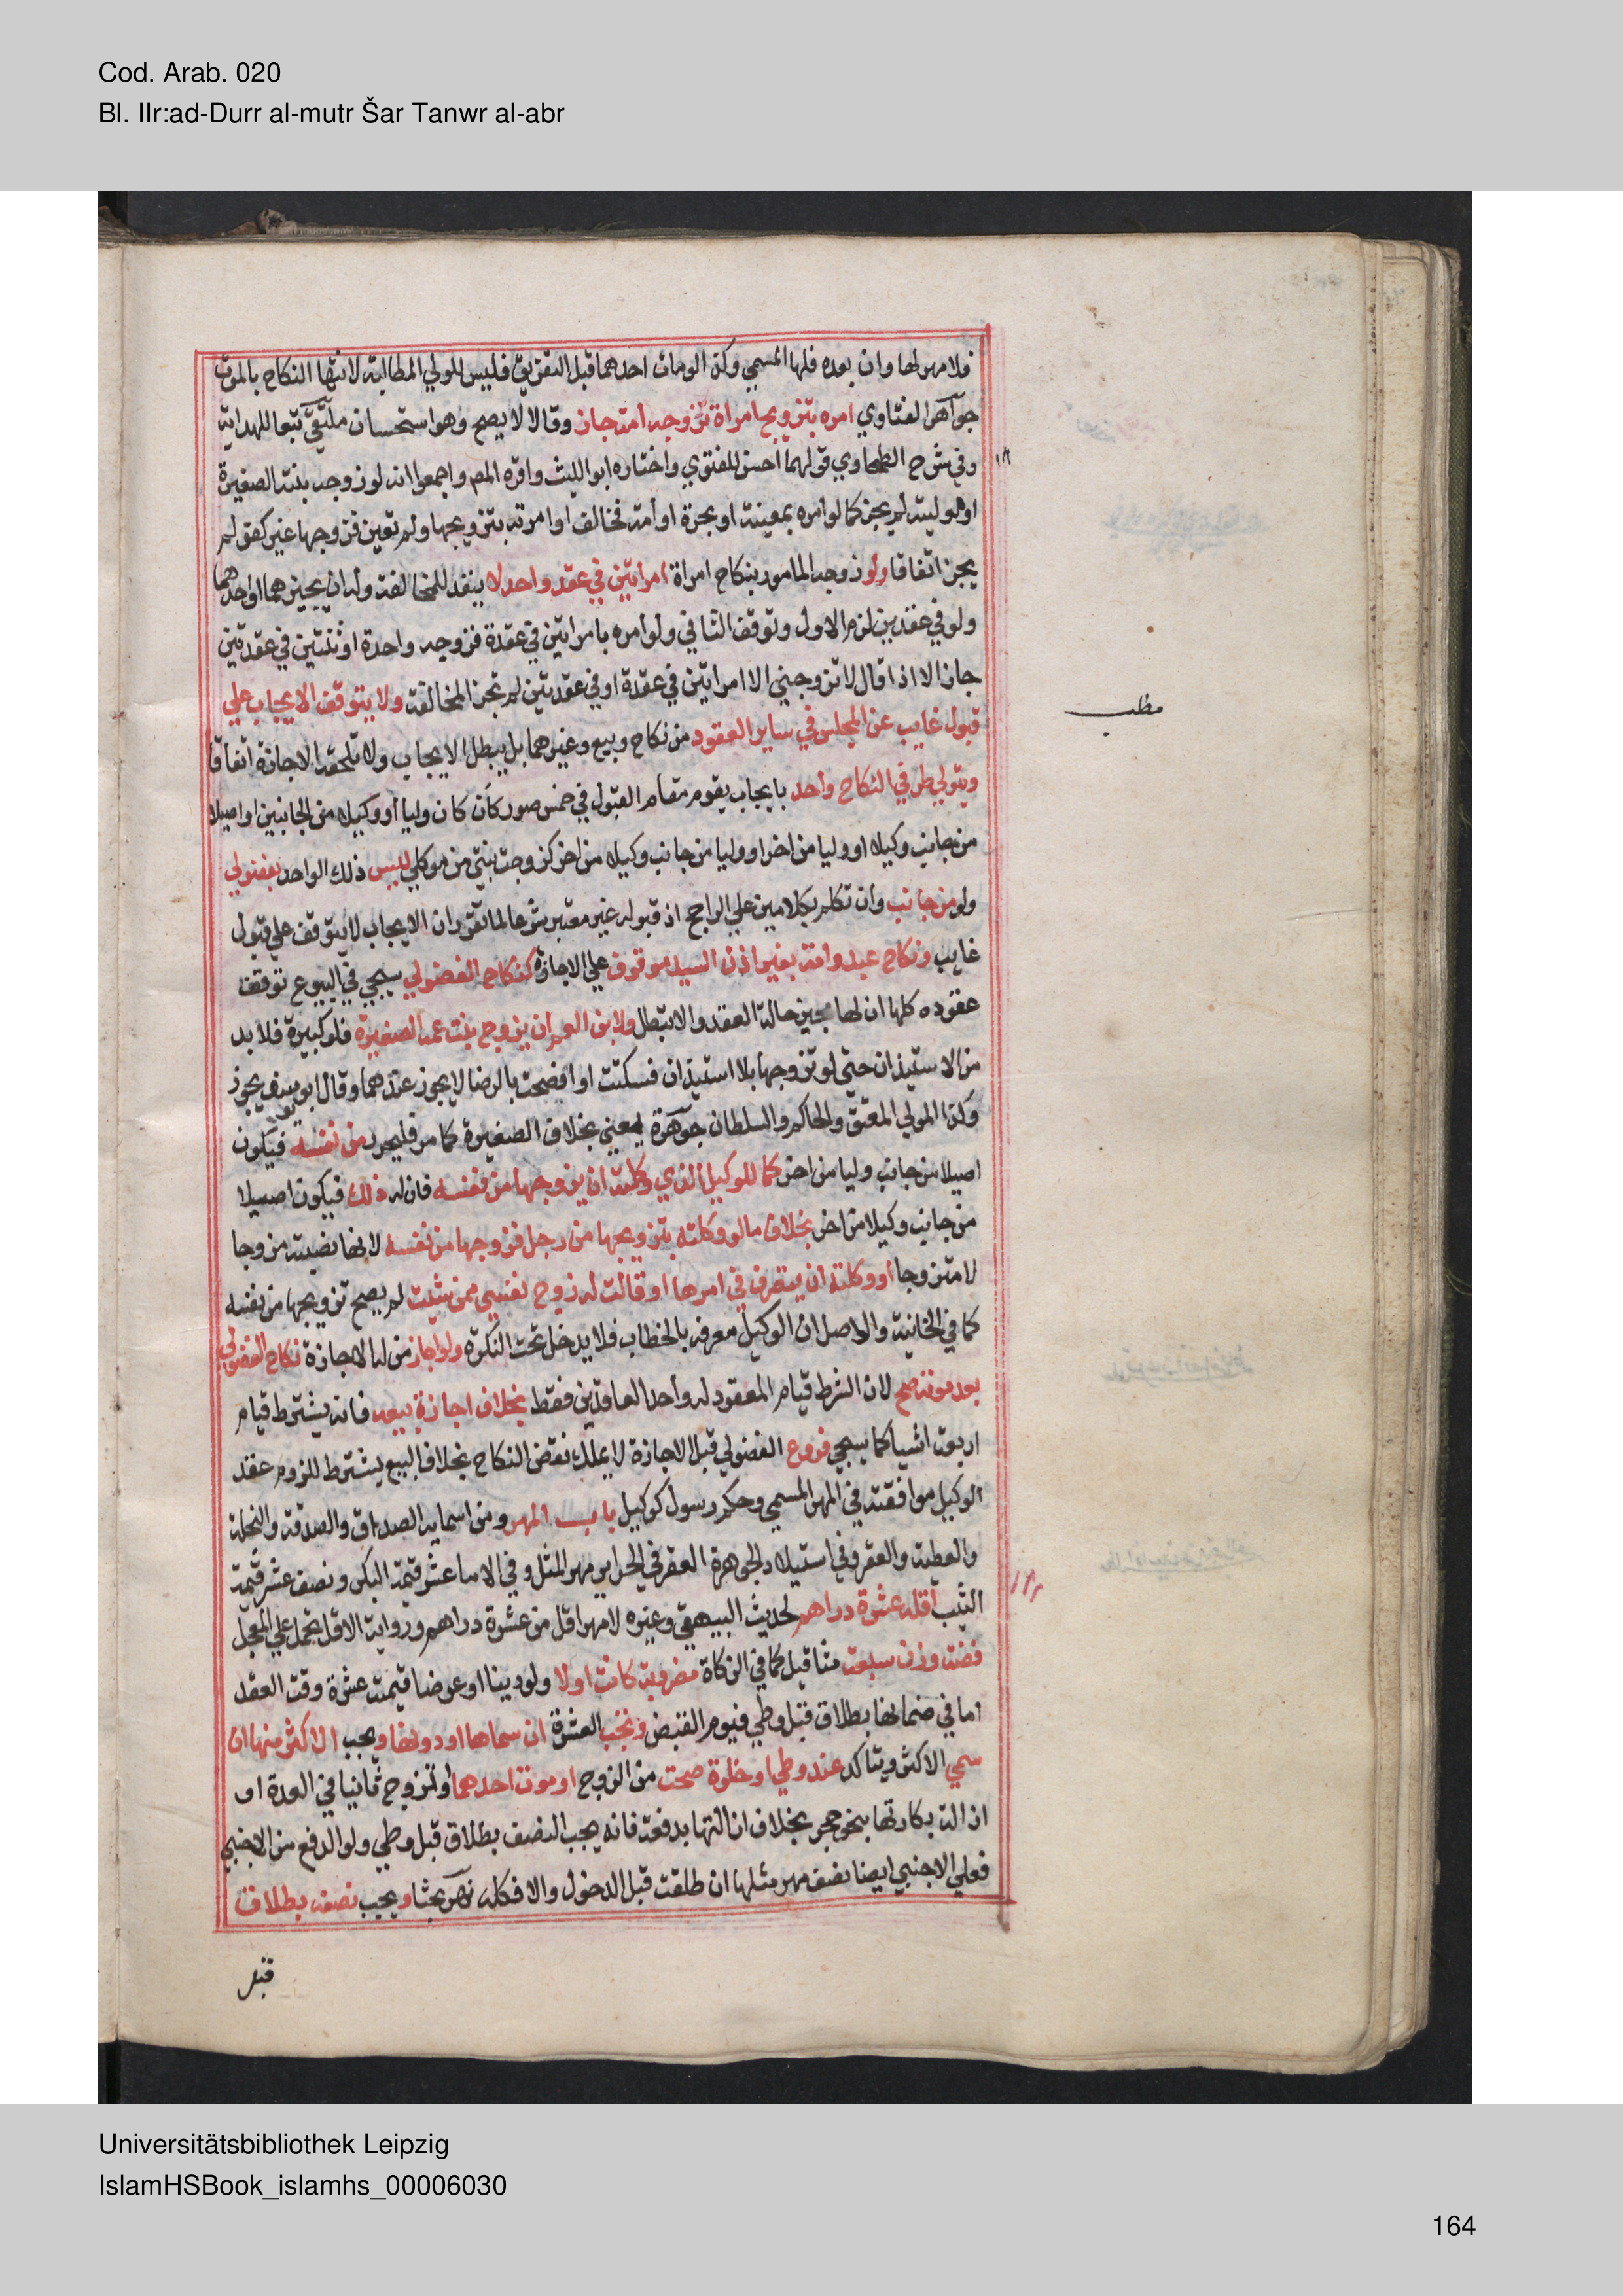 Cod. Arab. 020
Bl. IIr:ad-Durr al-mutr Šar Tanwr al-abr
فلا مهر لها وان بعده فلها المسمي وكذا لو مات احدهما قبل التفريق فليس للولي المطالبة لانتها النكاح بالموت
جواهر الفتاوي امره بتزويج امراة فزوجه امة جاز وقالا لا يصح وهو استحسان ملتقي تبعا للهداية
وفي شرح الطحاوي قولهما احسن للفتوي واختاره ابو الليث واقره المص واجمعوا انه لو زوجه بنته الصغيرة
او موليته لم يجز كما لو امره بمعينة او بحرة او أمة فخالف او امرته بتزويجها ولم تعين فزوجها غير كفو لم
يجز اتفاقا ولو زوجه المامور بنكاح امراة امراتين في عقد واحد لا ينفذ للمخالفة وله ان يجيزهما او احدهما
ولو في عقدين لزم الاول وتوقف الثاني ولو امره بامراتين في عقدة فزوجه واحدة او ثنتين في عقدتين
جاز الا اذا قال لا تزوجني الا امراتين في عقدة او في عقدتين لم تجز المخالفة ولا يتوقف الايجاب علي
قبول غايب عن المجلس في ساير العقود من نكاح وبيع وغيرهما بل يبطل الايجاب ولا تلحقه الاجازة اتفاقا
ويتولي طرفي النكاح واحد بايجاب يقوم مقام القبول في خمس صور كأن كان وليا او وكيلا من الجانبين او اصيلا
من جانب وكيلا او وليا من اخر او وليا من جانب وكيلا من اخر كزوجت بنتي من موكلي ليس ذلك الواحد بفضولي
ولو من جانب وان تكلم بكلامين علي الراجح اذ قبوله غير معتبر شرعا لما تقرر ان الايجاب لا يتوقف علي قبول
غايب ونكاح عبد وامة بغير اذن السيد موقوف علي الاجازة كنكاح الفضولي سيجي في البيوع توقف
عقوده كلها ان لها مجيز حالة العقد والا تبطل ولابن العم ان يزوج بنت عمه الصغيرة فلو كبيرة فلا بد
من الاستيذان حتي لو تزوجها بلا استيذان فسكتت او افصحت بالرضا لا يجوز عندهما وقال ابو يوسف يجوز
وكذا المولي المعتق والحاكم والسلطان جوهرة يعني بخلاف الصغيرة كما مر فليحرر من نفسه فيكون
اصيلا من جانب وليا من اخر كما للوكيل الذي وكلته ان يزوجها من نفسه فان له ذلك فيكون اصيلا
من جانب وكيلا من اخر بخلاف ما لو وكلته بتزويجها من رجل فزوجها من نفسه لانها نصبته مزوجا
لا متزوجا او وكلته ان يتصرف في امرها او قالت له زوج نفسي ممن شئت لم يصح تزويجها من نفسه
كما في الخانية والاصل ان الوكيل معرفة بالخطاب فلا يدخل تحت النكرة ولو اجاز من له الاجازة نكاح الفضولي
بعد موته صح لان الشرط قيام المعقود له واحد العاقدين فقط بخلاف اجازة بيعه فانه يشترط قيام
اربعة اشيا كما سيجي فروع الفضولي قبل الاجازة لا يملك نقض النكاح بخلاف البيع يشترط للزوم عقد
الوكيل موافقته في المهر المسمي وحكم رسول كوكيل باب المهر ومن اسمايه الصداق والصدقة والنحلة
والعطية والعقر وفي استيلاد الجوهرة العقر في الحراير مهر المثل وفي الاما عشر قيمة البكر ونصف عشر قيمة
الثيب أقله عشرة دراهم لحديث البيهقي وغيره لا مهر اقل من عشرة دراهم ورواية الاقل تحمل علي المعجل
فضة وزن سبعة مثاقيل كما في الزكاة مضروبة كانت او لا ولو دينا او عرضا قيمته عشرة وقت العقد
اما في ضمانها بطلاق قبل وطي فيوم القبض وتجب العشرة ان سماها او دونها ويجب الاكثر منها ان
سمي الاكثر ويتاكد عند وطي او خلوة صحت من الزوج او موت احدهما او تزوج ثانيا في العدة او
ازالة بكارتها بنحو حجر بخلاف ازالتها بدفعة فانه يجب النصف بطلاق قبل وطي ولو الدفع من الاجنبي
فعلي الاجنبي ايضا نصف مهر مثلها ان طلقت قبل الدخول والا فكله نهر بحثا ويجب نصفه بطلاق
قبل
مطلب
Universitätsbibliothek Leipzig
IslamHSBook_islamhs_00006030
164